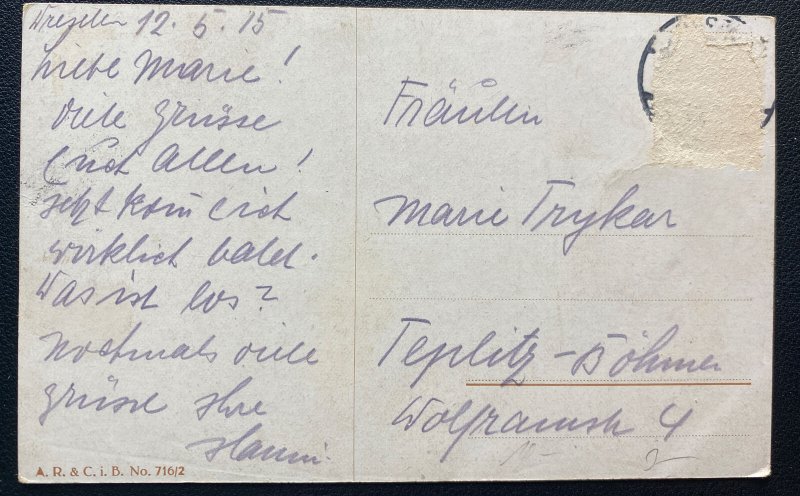 Dresden 12.5.15
Liebe Marie!
Viele Grüsse
Euch Allen!
Jetzt kom̅ ich
wirklich bald.
Was ist los?
Nochmals viele
Grüsse Ihre
Hanni.
A. R. & C. i. B. No. 716/2
Fräulein
Marie Trykar
Teplitz-Böhmen
Wolframstr 4